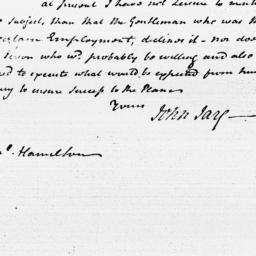 at present I have not Leisure to
Subject, than that the Gentleman who was
Employment, declines it — nor does
Person who wd. probably be willing and also
to execute what would be expected from him
to ensure success to the Plan
Yours
John Jay —
Hamilton